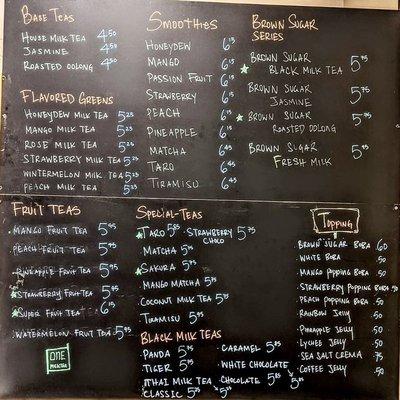 Base Teas
House Milk Tea 4.50
Jasmine 4.50
Roasted Oolong 4.50
Flavored Greens
Honeydew Milk Tea 5.25
Mango Milk Tea 5.25
Rose Milk Tea 5.25
Strawberry Milk Tea 5.25
Wintermelon Milk Tea 5.25
Peach Milk Tea 5.25
Smoothies
Honeydew 6.15
Mango 6.15
Passion Fruit 6.15
Strawberry 6.15
Peach 6.15
Pineapple 6.15
Matcha 6.45
Taro 6.45
Tiramisu 6.45
Brown Sugar
Series
Brown Sugar
Black Milk Tea 5.75
Brown Sugar
Jasmine 5.75
Brown Sugar
Roasted Oolong 5.75
Brown Sugar
Fresh Milk 5.75
Fruit Teas
Mango Fruit Tea 5.95
Peach Fruit Tea 5.95
Pineapple Fruit Tea 5.95
Strawberry Fruit Tea 5.95
Super Fruit Tea 6.15
Watermelon Fruit Tea 5.95
ONE
Special-Teas
Taro 5.85
Strawberry
Choco 5.75
Matcha 5.95
Sakura 5.95
Mango Matcha 5.95
Coconut Milk Tea 5.95
Tiramisu 5.95
Black Milk Teas
Panda 5.95
Tiger 5.95
Thai Milk Tea
Classic 5.95
Caramel 5.95
White Chocolate
Chocolate
Topping
Brown Sugar Boba .60
White Boba .50
Mango Popping Boba .50
Strawberry Popping Boba .50
Peach Popping Boba .50
Rainbow Jelly .50
Pineapple Jelly .50
Lychee Jelly .50
Sea Salt Crema .75
Coffee Jelly .50